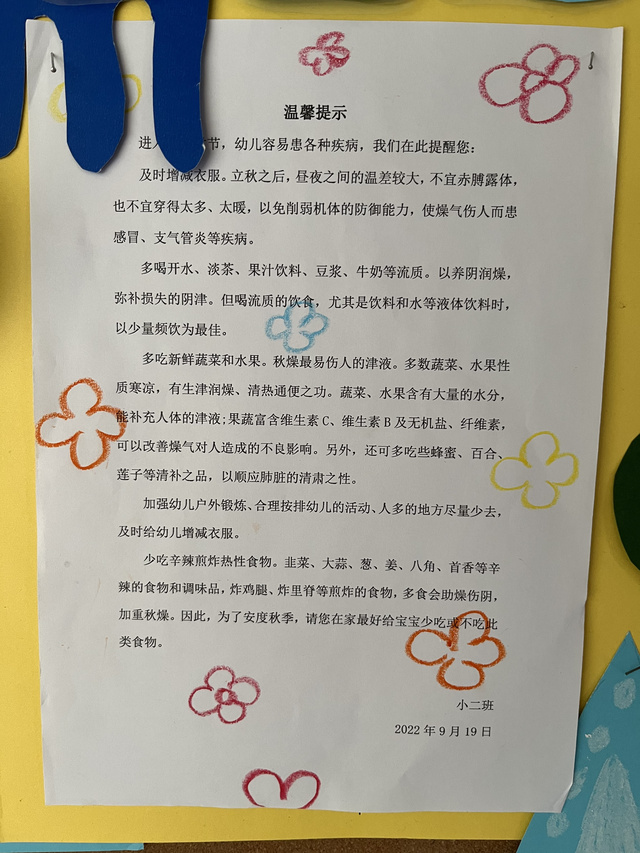 温馨提示
进入 节，幼儿容易患各种疾病，我们在此提醒您：
及时增减衣服。立秋之后，昼夜之间的温差较大，不宜赤膊露体，
也不宜穿得太多、太暖，以免削弱机体的防御能力，使燥气伤人而患
感冒、支气管炎等疾病。
多喝开水、淡茶、果汁饮料、豆浆、牛奶等流质。以养阴润燥，
弥补损失的阴津。但喝流质的饮食，尤其是饮料和水等液体饮料时，
以少量频饮为最佳。
多吃新鲜蔬菜和水果。秋燥最易伤人的津液。多数蔬菜、水果性
质寒凉，有生津润燥、清热通便之功。蔬菜、水果含有大量的水分，
能补充人体的津液;果蔬富含维生素C、维生素B及无机盐、纤维素，
可以改善燥气对人造成的不良影响。另外，还可多吃些蜂蜜、百合、
莲子等清补之品，以顺应肺脏的清肃之性。
加强幼儿户外锻炼、合理按排幼儿的活动、人多的地方尽量少去，
及时给幼儿增减衣服。
少吃辛辣煎炸热性食物。韭菜、大蒜、葱、姜、八角、首香等辛
辣的食物和调味品，炸鸡腿、炸里脊等煎炸的食物，多食会助燥伤阴，
加重秋燥。因此，为了安度秋季，请您在家最好给宝宝少吃或不吃此
类食物。
小二班
2022年9月19日